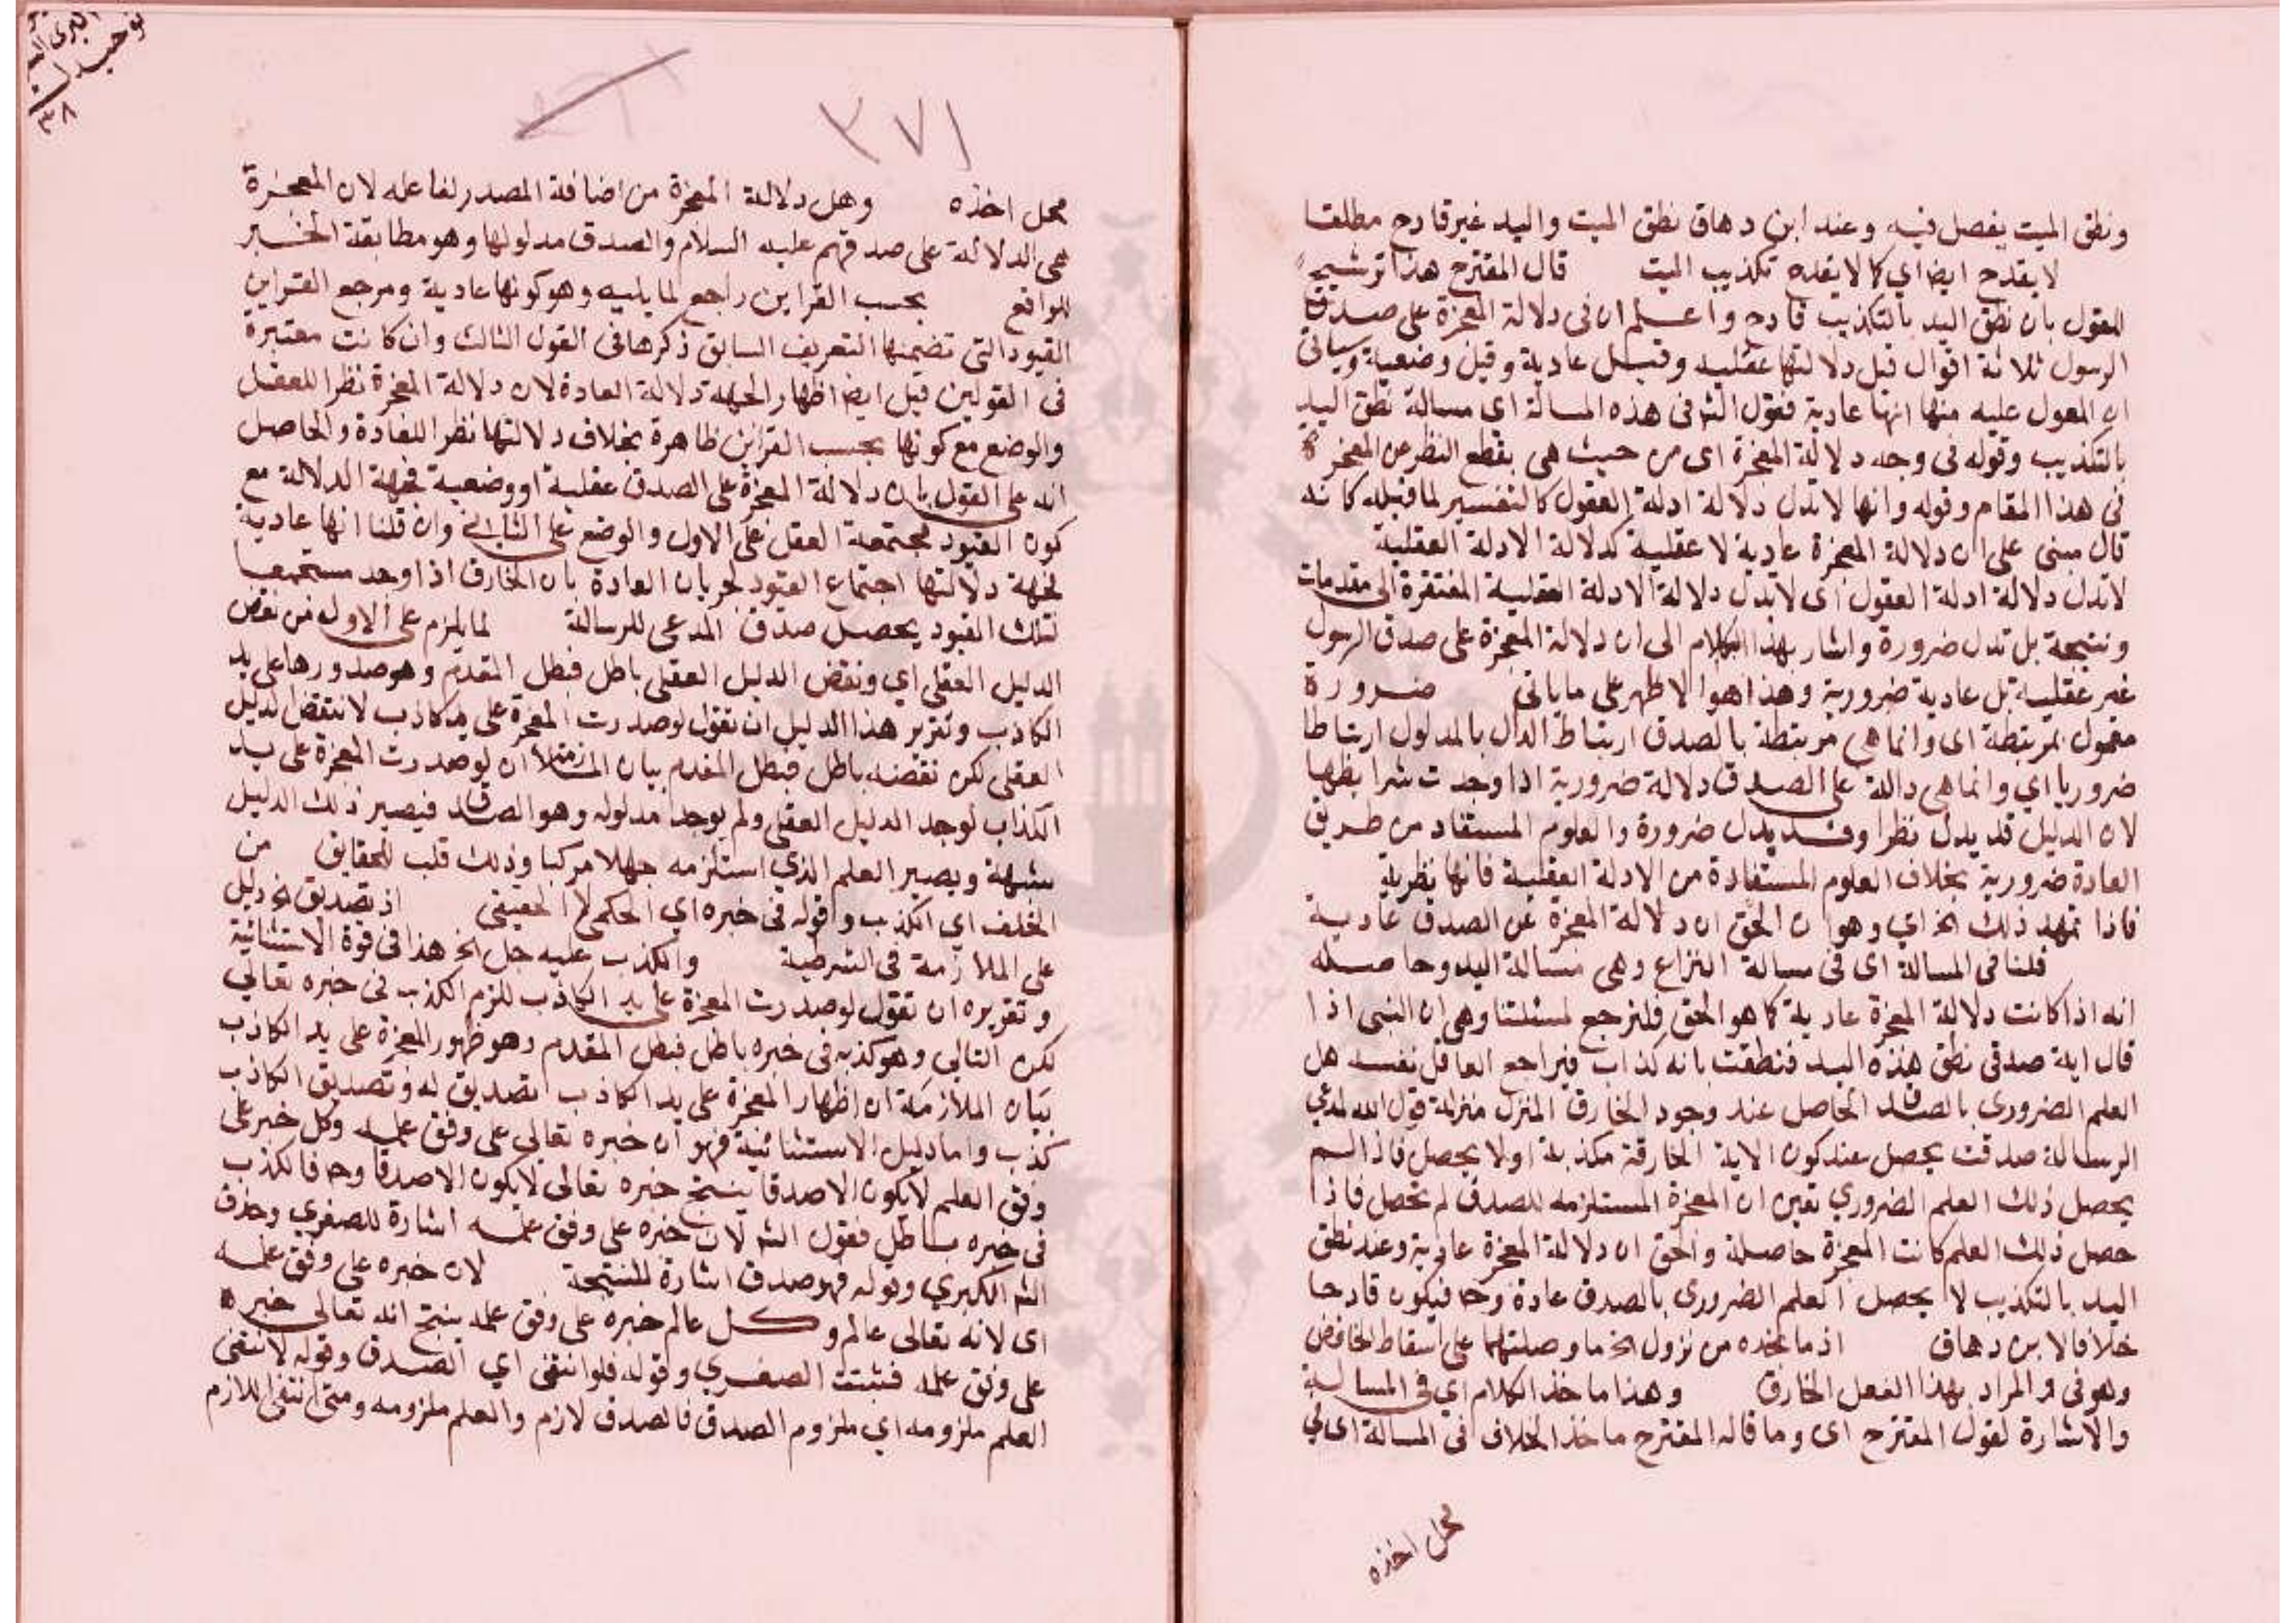 ونطق الميت يفصل فيه وعند ابن دهاق نطق الميت واليد غير قادح مطلقا
لا يقدح ايضا اي كما لا يقدح تكذيب الميت قال المقترح هذا ترشيح
للقول بان نطق اليد بالتكذيب قادح واعلم ان في دلالة المعجزة على صدق
الرسول ثلاثة اقوال قيل دلالتها عقلية وقيل عادية وقيل وضعية وسياتي
ان المعول عليه منها انها عادية فقول الشم في هذه المسالة اي مسالة نطق اليد
بالتكذيب وقوله في وجه دلالة المعجزة اى من حيث هى بقطع النظر عن المعجزة
في هذا المقام وقوله وانها لا تدل دلالة ادلة العقول كالتفسير لما قبله كانه
قال مبنى على ان دلالة المعجزة عادية لا عقلية كدلالة الادلة العقلية
لا تدل دلالة ادلة العقول اى لا تدل دلالة الادلة العقلية المفتقرة الى مقدمات
ونتيجة بل تدل ضرورة واشار بهذا الكلام الى ان دلالة المعجزة على صدق الرسول
غير عقلية بل عادية ضرورية وهذا هو الاظهر على ماياتى ضرورة
معمول لمرتبطة اى وانما هي مرتبطة بالصدق ارتباط الدال بالمدلول ارتباطا
ضروريا اي وانما هى دالة على الصدق دلالة ضرورية اذا وجدت شرايطها
لان الدليل قد يدل نظرا وقد يدل ضرورة والعلوم المستفاد من طريق
العادة ضرورية بخلاف العلوم المستفادة من الادلة العقلية فانها نظرية
فاذا تمهد ذلك الخ اي وهو ان الحق ان دلالة المعجزة عن الصدق عادية
قلنا في المسالة اى في مسالة النزاع وهى مسالة اليد وحاصله
انه اذا كانت دلالة المعجزة عادية كما هو الحق فلنرجع لمسئلتنا وهى ان النبى اذا
قال اية صدقى نطق هذه اليد فنطقت بانه كذاب فيراجع العاقل نفسه هل
العلم الضرورى بالصدق الحاصل عند وجود الخارق المنزل منزلة قول الله لمدعي
الرسالة صدقت يحصل عند كون الاية الخارقة مكذبة او لا يحصل فاذا لم
يحصل ذلك العلم الضروري تعين ان المعجزة المستلزمه للصدق لم تحصل فاذا
حصل ذلك العلم كانت المعجزة حاصلة والحق ان دلالة المعجزة عادية وعند نطق
اليد بالتكذيب لا يحصل العلم الضرورى بالصدق عادة وح فيكون قادحا
خلافا لابن دهاق اذ ما تحده من نزول الخ ما وصلتها على اسقاط الخافض
وهو في والمراد بهذا الفعل الخارق وهذا ماخذ الكلام اي في المسالة
والاشارة لقول المقترح اى وما قاله المقترح ماخذ الخلاف في المسالة اى لي
محل اخذه
٣٧١
محل اخذه وهل دلالة المعجزة من اضافة المصدر لفاعله لان المعجزة
هى الدلالة على صدقهم عليه السلام والصدق مدلولها وهو مطابقة الخبر
للواقع بحسب القراين راجع لما يليه وهو كونها عادية ومرجع القراين
القيود التى تضمنها التعريف السابق ذكرها فى القول الثالث وان كانت معتبرة
فى القولين قبل ايضا اظهار الجهة دلالة العادة لان دلالة المعجزة نظرا للعقل
والوضع مع كونها بحسب القراين ظاهرة بخلاف دلالتها نظرا للعادة والحاصل
انه على القول بان دلالة المعجزة على الصدق عقلية او وضعية فجهة الدلالة مع
كون القيود مجتمعة العقل على الاول والوضع على الثاني وان قلنا انها عادية
فجهة دلالتها اجتماع القيود لجريان العادة بان الخارق اذا وجد مستجمعا
لتلك القيود يحصل صدق المدعى للرسالة لما يلزم على الاول من نقض
الدليل العقلى اي ونقض الدليل العقلى باطل فبطل المقدم وهو صدورها على يد
الكاذب وتقرير هذا الدليل ان نقول لو صدرت المعجزة على يد كاذب لانتقض الدليل
العقلى لكن نقضه باطل فبطل المقدم بيان الملازمة ان لو صدرت المعجزة على يد
الكذاب لوجد الدليل العقلى ولم يوجد مدلوله وهو الصدق فيصير ذلك الدليل
شبهة ويصير العلم الذي استلزمه جهلا مركبا وذلك قلب للحقايق من
الخلف اي الكذب وقوله فى خبره اي الحكمى لا الحقيقى اذ تصديق الخ دليل
على الملازمة فى الشرطية والكذب عليه جل الخ هذا فى قوة الاستثنائية
وتقريره ان تقول لو صدرت المعجزة على يد الكاذب للزم الكذب فى خبره تعالى
لكن التالى وهو كذبه فى خبره باطل فبطل المقدم وهو ظهور المعجزة على يد الكاذب
بيان الملازمة ان اظهار المعجزة على يد الكاذب تصديق له وتصديق الكاذب
كذب واما دليل الاستثنائية فهو ان خبره تعالى على وفق علمه وكل خبر على
وفق العلم لا يكون الا صدقا ينتج خبره تعالى لا يكون الا صدقا وح فالكذب
فى خبره باطل فقول الشم لان خبره على وفق علمه اشارة للصغرى وحذف
الشم الكبرى وقوله فهو صدق اشارة للنتيجة لان خبره على وفق علمه
اى لانه تعالى عالم وكل عالم خبره على وفق علمه ينتج انه تعالى خبره
على وفق علمه فثبتت الصغرى وقوله فلو انتفى اي الصدق وقوله لا نتفى
العلم ملزومه اي ملزوم الصدق فالصدق لازم والعلم ملزومه ومتى انتفى اللازم